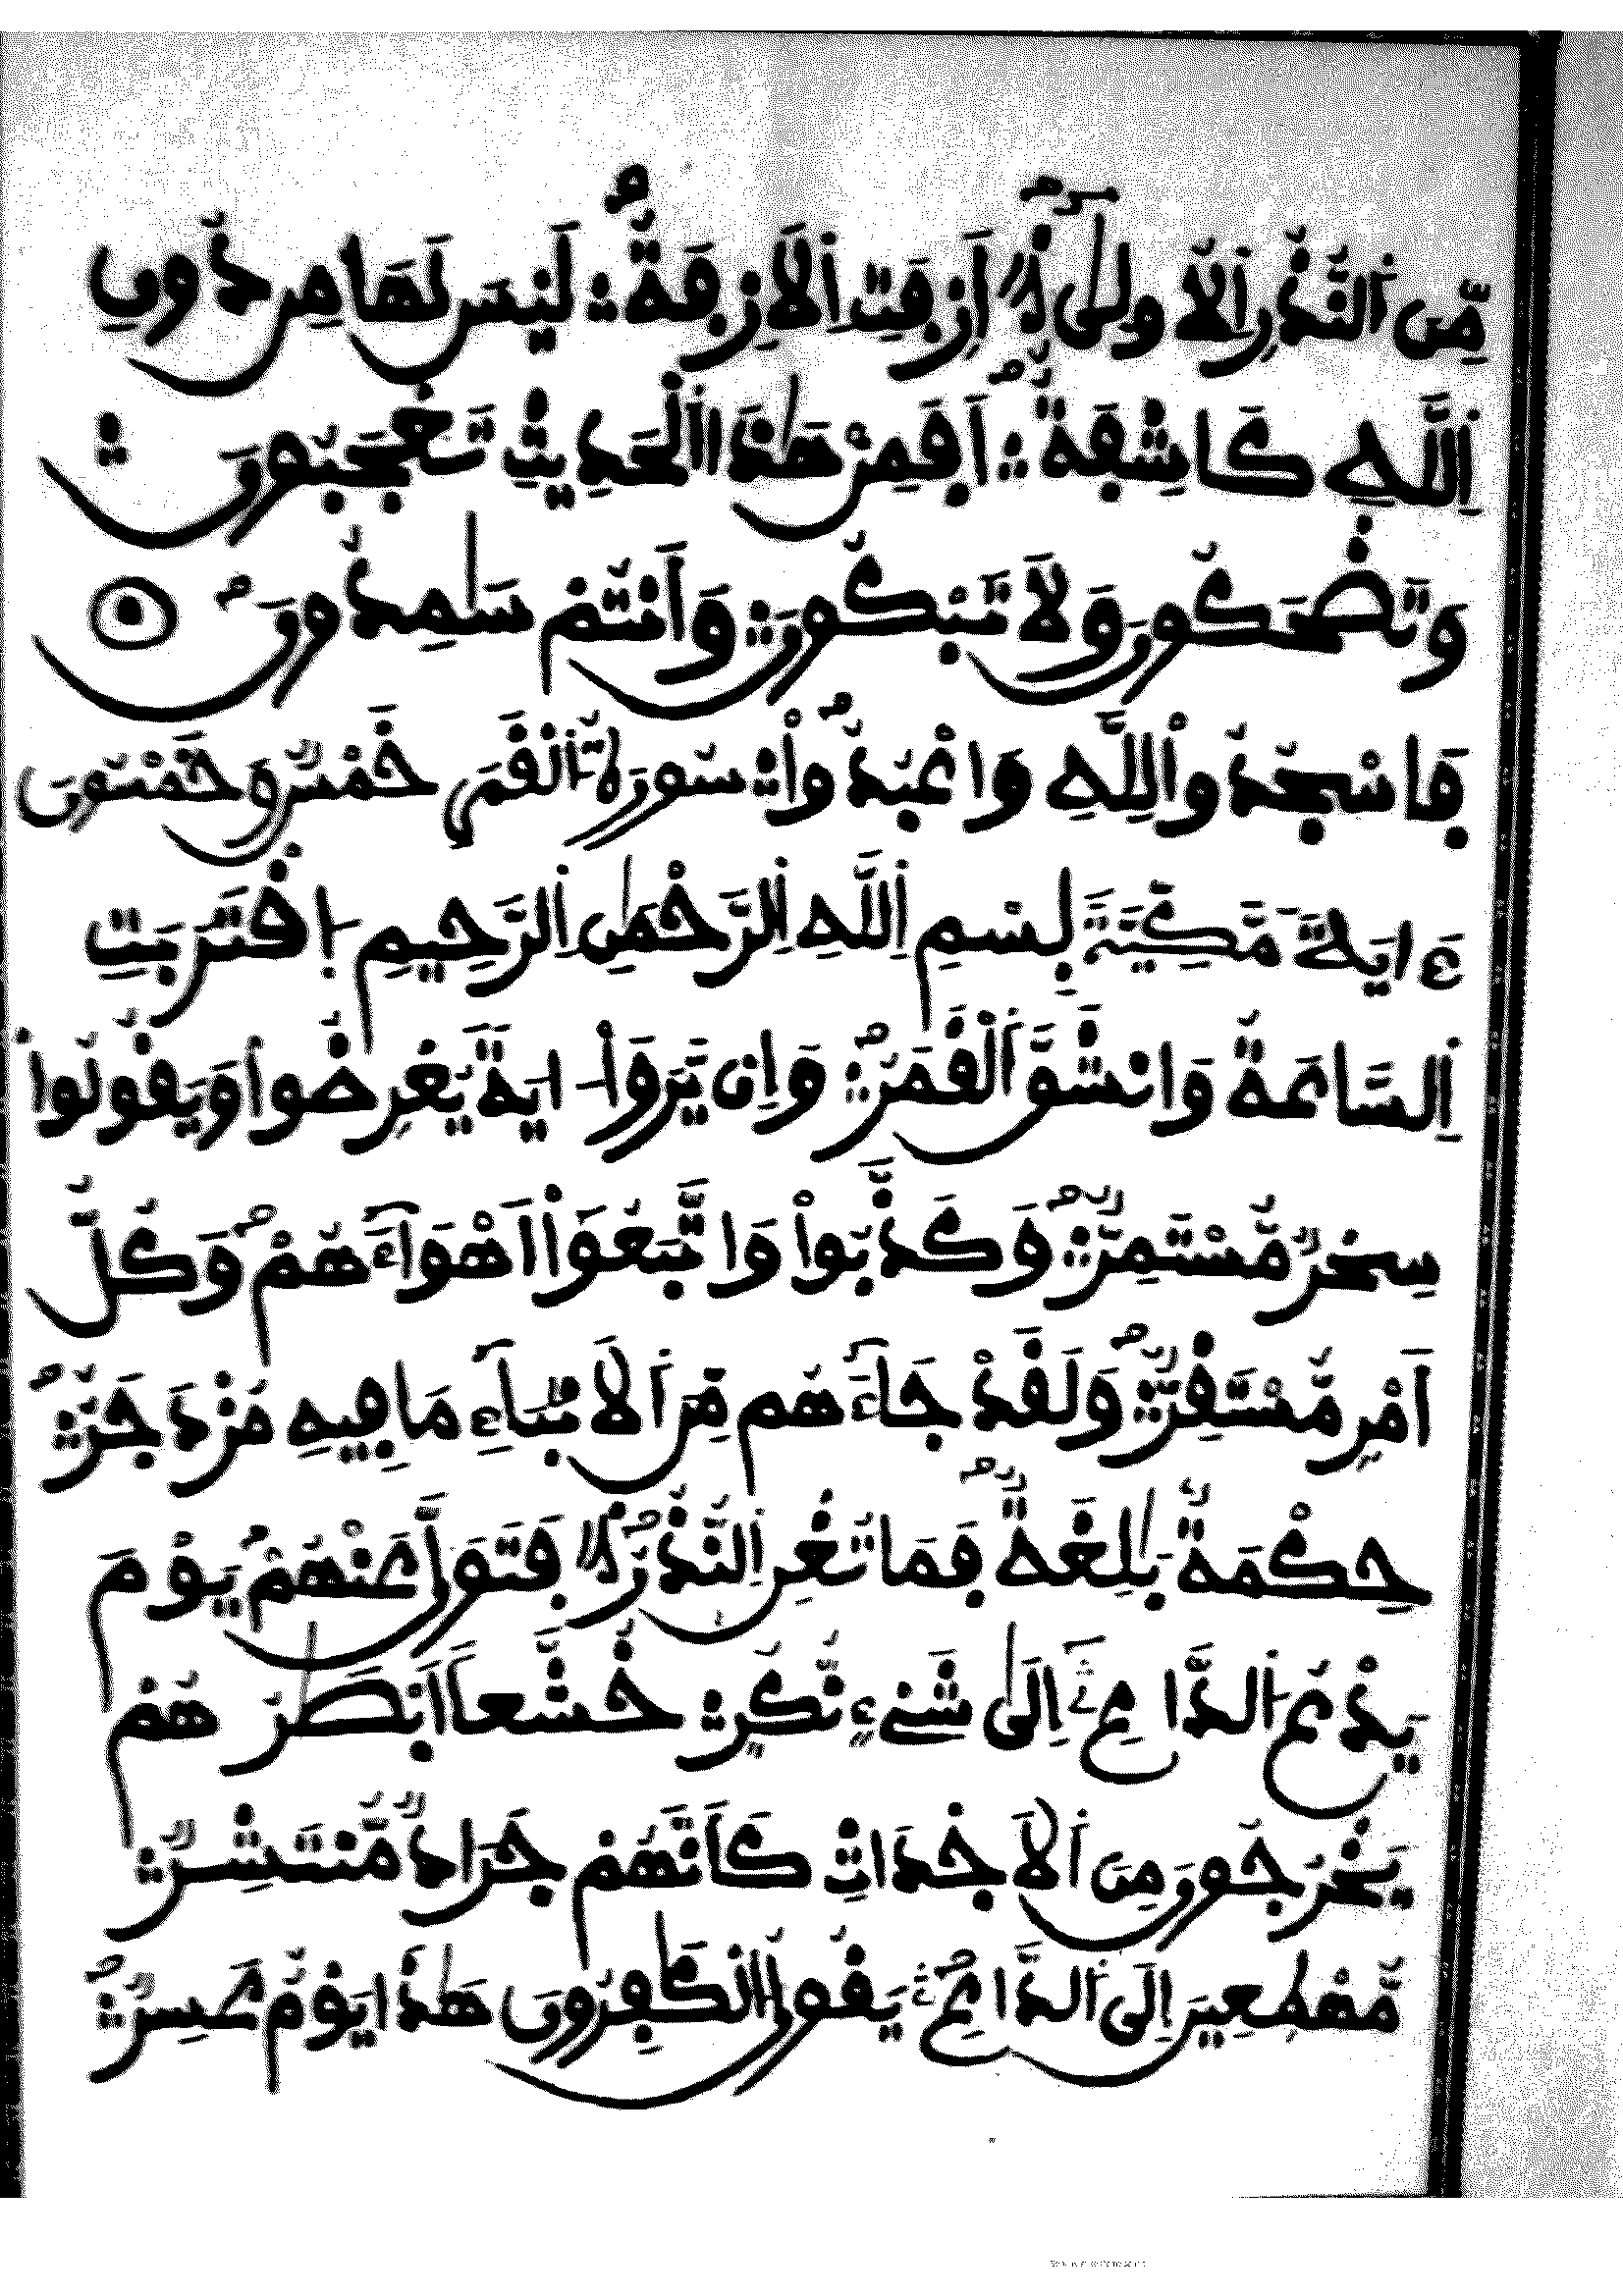 مِّنَ اَ۬لنُّذُرِ اِ۬لُاولَىٰٓۖ أَزِفَتِ اِ۬لَازِفَةُ لَيْسَ لَهَا مِن دُونِ
اِ۬للَّهِ كَاشِفَةٌۖ اَفَمِنْ هَٰذَا اَ۬لْحَدِيثِ تَعْجَبُونَ
وَتَضْحَكُونَ وَلَا تَبْكُونَ وَأَنتُمْ سَٰمِدُونَ
فَاسْجُدُواْ لِلهِ وَاعْبُدُواْ سُورَةُ اَ۬لْقَمَرِ خَمْسٌ وَخَمْسُونَ
ءَايَةً مَّكِّيَّةٌ بِسْمِ اِ۬للَّهِ اِ۬لرَّحْمَٰنِ اِ۬لرَّحِيمِ اِ۪قْتَرَبَتِ
اِ۬لسَّاعَةُ وَانشَقَّ اَ۬لْقَمَرُ وَإِنْ يَّرَوَاْ ايَةً يُعْرِضُواْ وَيَقُولُواْ
سِحْرٌ مُّسْتَمِرٌّ وَكَذَّبُواْ وَاتَّبَعُوٓاْ أَهْوَآءَهُمْ وَكُلُّ
أَمْرٍ مُّسْتَقِرٌّ وَلَقَدْ جَآءَهُم مِّنَ اَ۬لَانۢبَآءِ مَا فِيهِ مُزْدَجَرٌ
حِكْمَةُۢ بَٰلِغَةٌ فَمَا تُغْنِ اِ۬لنُّذُرُ فَتَوَلَّ عَنْهُمْ يَوْمَ
يَدْعُ اُ۬لدَّاعِۦٓ إِلَىٰ شَےْءٖ نُّكُرٍ خُشَّعاً اَبْصَٰرُهُمْ
يَخْرُجُونَ مِنَ اَ۬لَاجْدَاثِ كَأَنَّهُمْ جَرَادٌ مُّنتَشِرٌ
مُّهْطِعِينَ إِلَى اَ۬لدَّاعِۦ يَقُولُ اُ۬لْكَٰفِرُونَ هَٰذَا يَوْمٌ عَسِرٌ